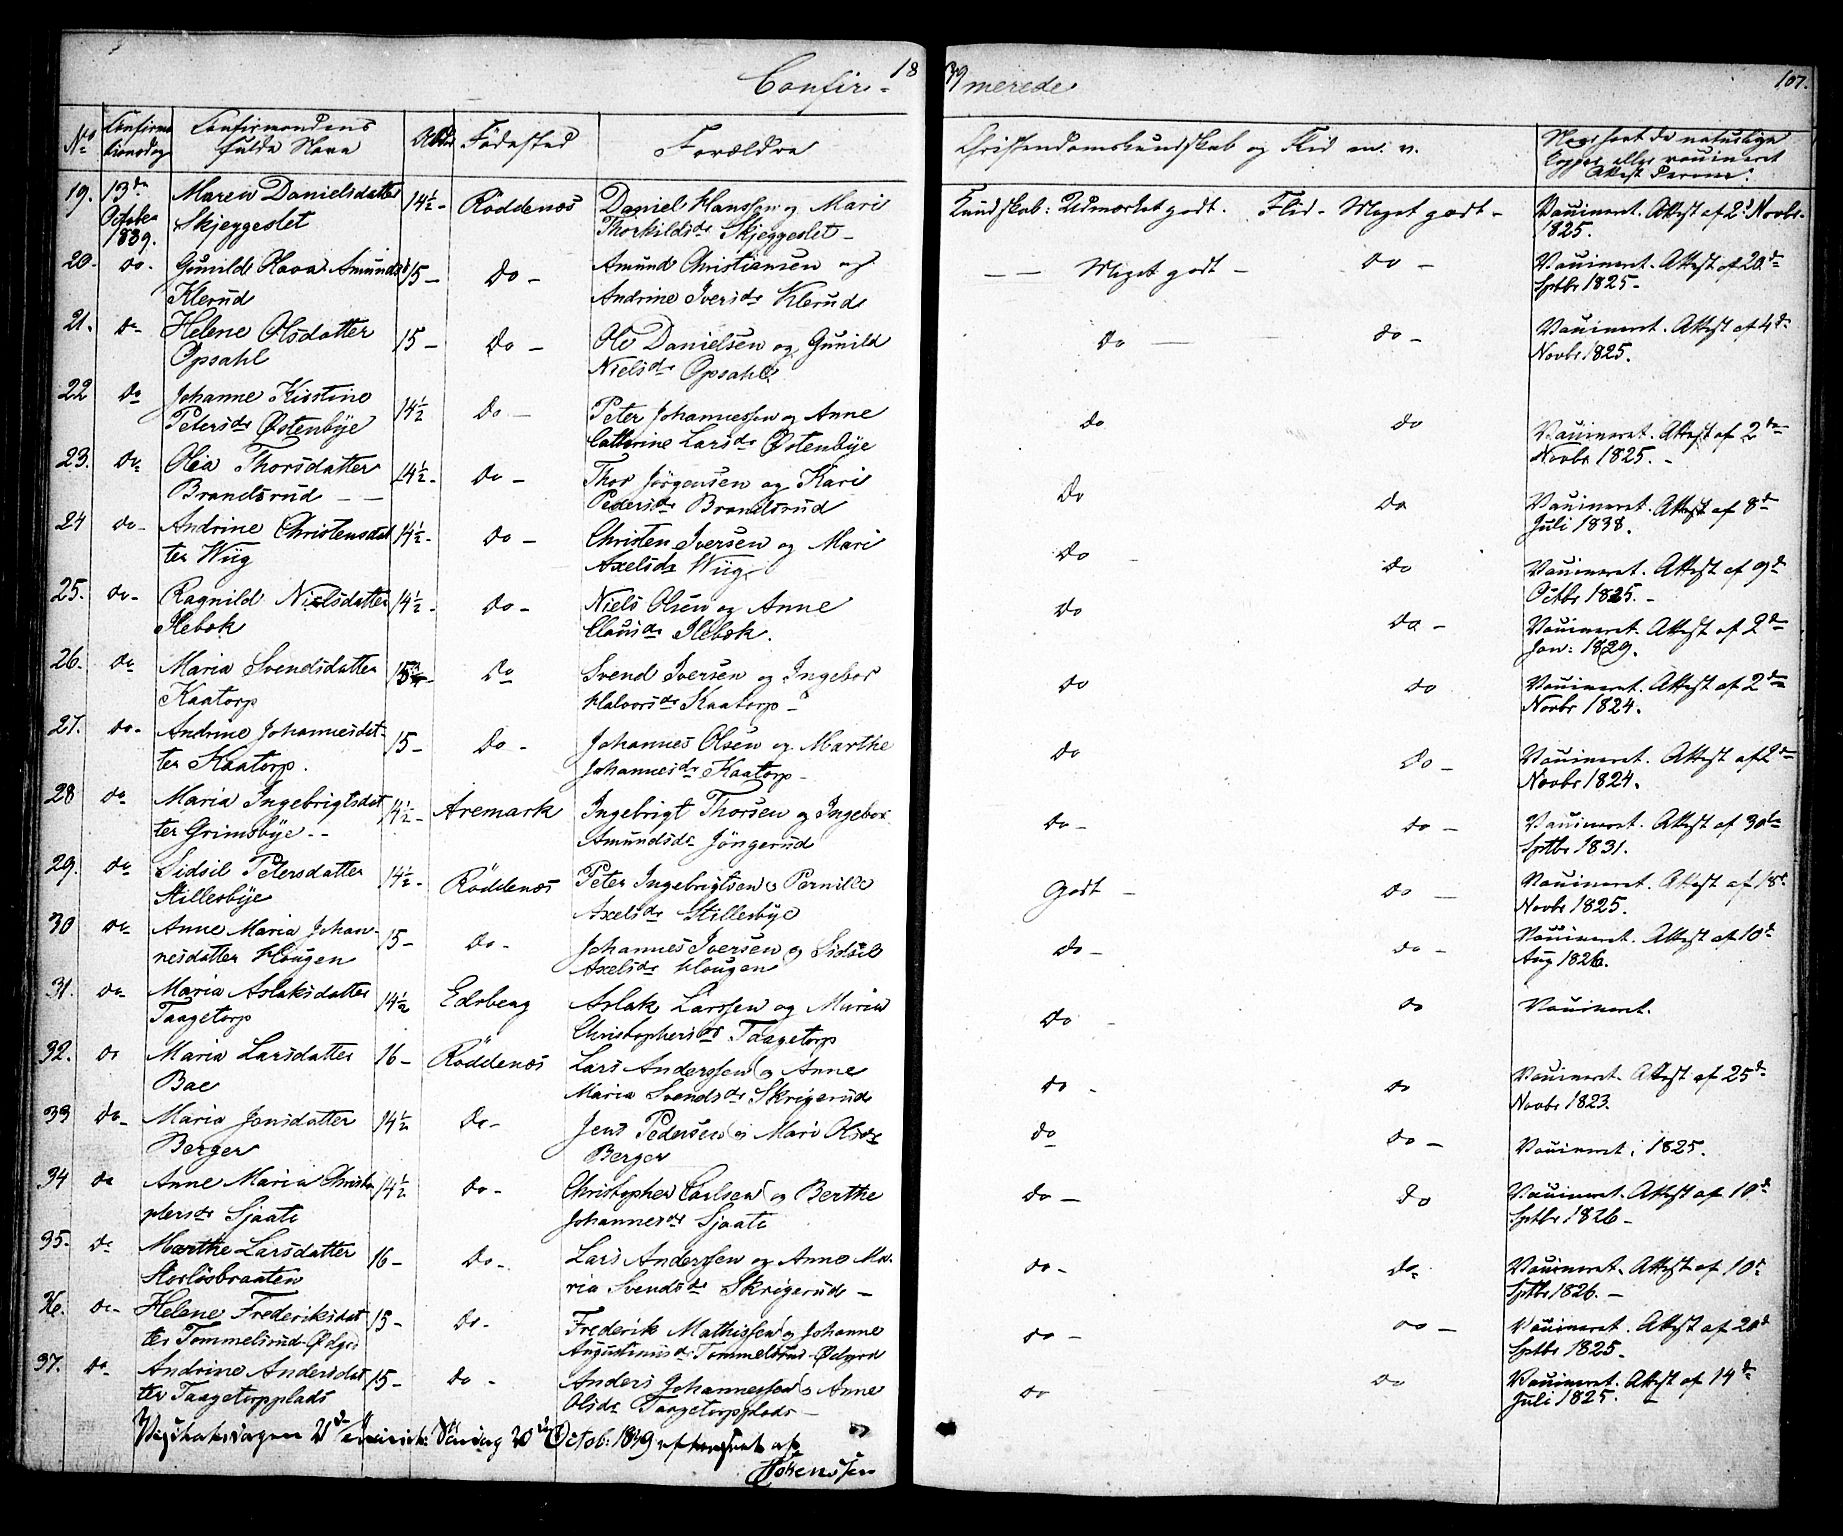 Confir- 18
39 merede 107.
No Confirmationsdag Confirmandens fulde Navn Alder Födested Forældre Christendomskundskab og Flid m. v. Naar havt de naturlige Copper eller vaccineret Attest derom.
19. 13de October 1839. Maren Danielsdatter Skjeggeslet 14½- Röddenæs Daniel Hanssen og Mari Thorkildsdr Skjeggeslet- Kundskab: Udmærket godt. Flid- Meget godt- Vaccineret. Attest af 2d Novbr. 1825.
20. do. Gunilde Olava Amundsd Klerud 15- Do- Amund Christiansen og Andrine Iversdr Klerud -- Meget godt- do- Vaccineret. Attest af 20de Sptbr 1825-
21. do Helene Olsdatter Opsahl 15- Do- Ole Danielsen og Gunild Nielsdr Opsahl do do- Vaccineret. Attest af 4de Novbr 1825.
22 do Johanne Kirstine Petersdr Østenbÿe 14½ Do- Peter Johannessen og Anne Cathrine Larsdr Østenbÿe do do Vaccineret. Attest af 2den Novbr 1825.-
23. do Olea Thorsdatter Brandsrud 14½- Do- Thor Jörgensen og Kari Pedersdr Brandsrud Do Do Vaccineret. Attest af 8de Juli 1838.
24 do- Andrine Christensdatter Wiig 14½- Do- Christen Iversen og Mari Axelsdr Wiig Do Do Vaccineret. Attest af 9de Octbr 1825.-
25. do- Ragnild Nielsdatter Ilebæk 14½- Do- Niels Olsen og Anne Clausdr Ilebæk. Do Do- Vaccineret. Attest af 2den Jan: 1829.
26. do Maria Svendsdatter Kaatorp 15- Do Svend Iversen og Ingebor Halvorsdr Kaatorp- Do do Vaccineret. Attest af 2den Novbr 1824.
27. do- Andrine Johannesdatter Kaatorp. 15- Do- Johannes Olsen og Marthe Johannesdr Kaatorp- Do Do- Vaccineret. Attest af 2den Novbr 1824.
28 do Maria Ingebrigtsdatter Grimsbÿe-- 14½- Aremark Ingebrigt Thorsen og Ingebor Amundsdr Jöngerud do- do- Vaccineret. Attest af 30te Sptbr 1831.
29. do Sidsil Petersdatter Stillesbÿe 14½- Röddenæs Peter Ingebrigtsen og Pernille Axelsdr Stillesbÿe Godt- do- Vaccineret. Attest af 18de Novbr 1825.
30 do Anne Maria Johannesdatter Hougen 15- Do- Johannes Iversen og Sidsil Axelsdr Hougen do- do- Vaccineret. Attest af 10de Aug 1826.
31. do- Maria Aslaksdatter Taagetorp 14½ Edsberg Aslak Larssen og Maria Christophersdr Taagetorp do- do Vaccineret.
32. do Maria Larsdatter Bae 16- Röddenæs Lars Anderssen og Anne Maria Svendsdr Skrigerud do- do Vaccineret. Attest af 25de Novbr 1823.
33 do- Maria Jensdatter Berger 14½ Do- Jens Pedersen og Mari Olsdr Berger do do- Vaccineret. 1825.
34 do Anne Maria Christophersdr Sjaati 14½ Do- Christopher Carlsen og Berthe Johannesdr Sjaati do- do Vaccineret. Attest af 10de Sptbr 1826-
35. do Marthe Larsdatter Storlösbraaten 16- Do- Lars Anderssen og Anne Maria Svendsdr Skrigerud- do- do- Vaccineret. Attest af 10de Sptbr 1826.-
36. do- Helene Frederiksdatter Tommelsrud-Ødegd 15- Do- Frederik Mathissen og Johanne Augustinusdr Tommelsrud-Ødegrd do- do- Vaccineret. Attest af 20de Sptbr 1825-
37. do Andrine Andersdatter Taagetorpplads 15- Do- Anders Johannessen og Anne Olsdr Taagetorpplads- do do Vaccineret. Attest af 14de Juli 1825.
20de Octob: 1849